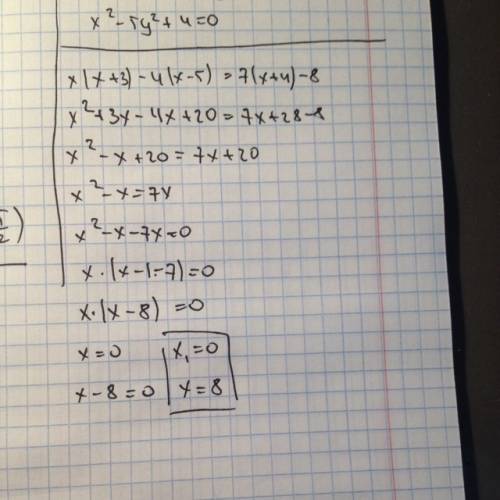 x² - 5y² + 4 = 0
x(x+3) - 4(x-5) = 7(x+4) - 8
x² + 3x - 4x + 20 = 7x + 28 - 8
x² - x + 20 = 7x + 20
x² - x = 7x
x² - x - 7x = 0
x · (x - 1 - 7) = 0
x · (x - 8) = 0
x = 0 x₁ = 0
x - 8 = 0 x = 8